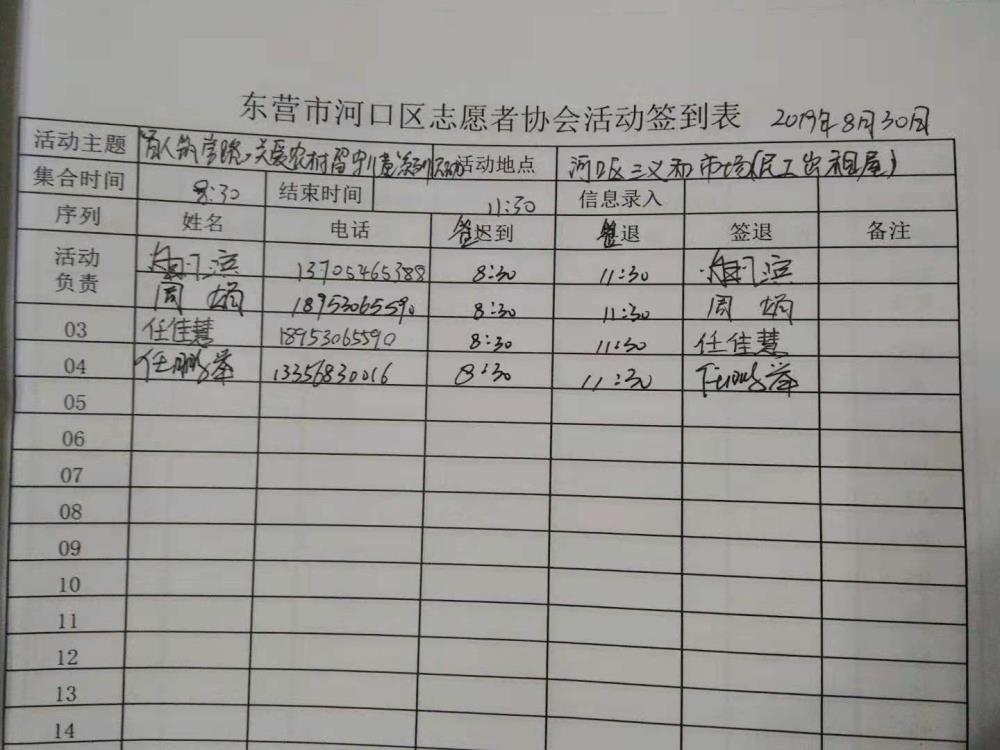 东营市河口区志愿者协会活动签到表 2019年8月30日
活动主题 百人筑学路,关爱农村留守儿童系列活动 活动地点 河口区三义和市场(民工出租屋)
集合时间 8:30 结束时间 11:30 信息录入
序列 姓名 电话 签到 签退 签退 备注
活动负责 滨 13705465388 8:30 11:30 滨
周娟 18953065590 8:30 11:30 周娟
03 任佳慧 18953065590 8:30 11:30 任佳慧
04 任鹏举 13356830016 8:30 11:30 任鹏举
05
06
07
08
09
10
11
12
13
14